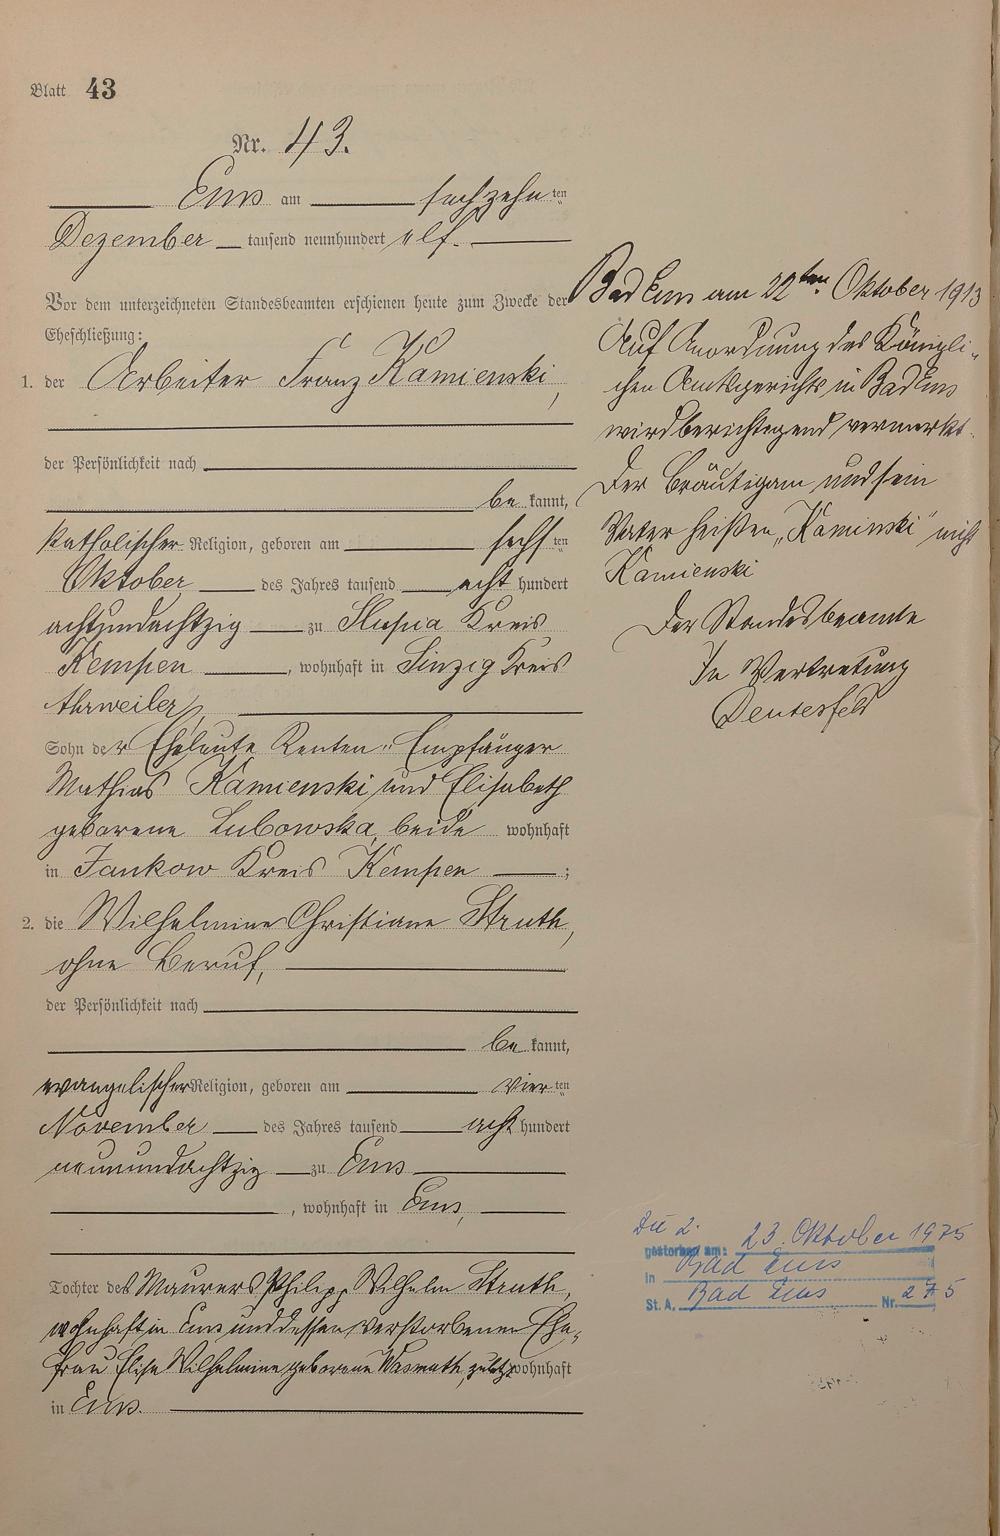 Blatt 43
Nr. 43.
Ems am sechzehnten
Dezember tausend neunhundert elf.
Vor dem unterzeichneten Standesbeamten erschienen heute zum Zwecke der
Eheschließung:
1. der Arbeiter Franz Kamienski,
der Persönlichkeit nach
bekannt,
katholischer Religion, geboren am sechsten
Oktober des Jahres tausend acht hundert
achtundachtzig zu Slupia Kreis
Kempen, wohnhaft in Sinzig Kreis
Ahrweiler,
Sohn der Eheleute Renten-Empfänger
Mathias Kamienski und Elisabeth
geborene Lubowska, beide wohnhaft
in Jankow Kreis Kempen;
2. die Wilhelmine Christiane Struth,
ohne Beruf,
der Persönlichkeit nach
bekannt,
evangelischer Religion, geboren am vierten
November des Jahres tausend acht hundert
neunundachtzig zu Ems
, wohnhaft in Ems,
Tochter des Maurers Philipp Wilhelm Struth,
wohnhaft in Ems und dessen verstorbenen Ehe-
frau Elise Wilhelmine geborene Wasmuth, zuletzt wohnhaft
in Ems.
Bad Ems am 22ten Oktober 1913
Auf Anordnung des Königli-
chen Amtsgerichts in Bad Ems
wird berichtigend vermerkt.
Der Bräutigam und sein
Vater heißen „Kaminski" nicht
Kamienski
Der Standesbeamte
In Vertretung
Die 2.
gestorben am: 23. Oktober 1975
in Bad Ems
St. A. Bad Ems Nr. 275